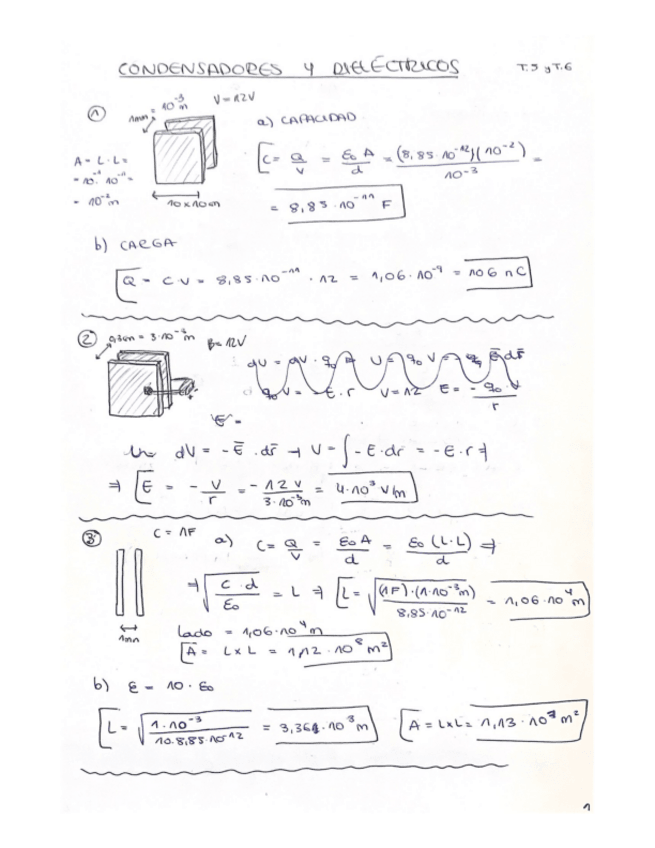 CONDENSADORES Y DIELÉCTRICOS T.5 y T.6
1
1mm = 10⁻³ m V = 12V
a) CAPACIDAD
A = L · L =
= 10⁻¹ · 10⁻¹ =
= 10⁻² m
10 x 10 cm
C = Q/V = ε₀ A/d = (8,85 · 10⁻¹²)(10⁻²)/10⁻³ =
= 8,85 · 10⁻¹¹ F
b) CARGA
Q = C · V = 8,85 · 10⁻¹¹ · 12 = 1,06 · 10⁻⁹ = 106 nC
2 0,3cm = 3 · 10⁻³ m B = 12V
V = 12 E = -
E =
dV = -E̅ · dr̅ → V = ∫ -E · dr = -E · r ⇒
⇒ E = - V/r = - 12 V/3 · 10⁻³m = 4 · 10³ V/m
3 C = 1F a) C = Q/V = ε₀ A/d = ε₀ (L · L)/d ⇒
⇒ √(C · d/ε₀) = L ⇒ L = √((1F) · (1 · 10⁻³m)/8,85 · 10⁻¹²) = 1,06 · 10⁴ m
1mm
lado = 1,06 · 10⁴ m
A = L x L = 1,12 · 10⁸ m²
b) ε = 10 · ε₀
L = √(1 · 10⁻³/10 · 8,85 · 10⁻¹²) = 3,361 · 10³ m A = L x L = 1,13 · 10⁷ m²
1